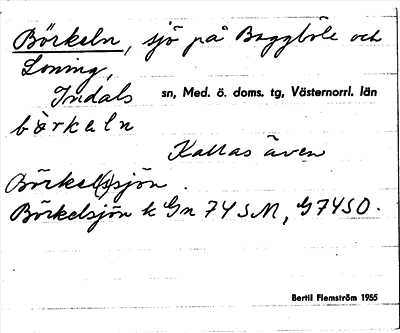 Börkeln, sjö på Boggböle och
Loning,
Indals sn, Med. ö. doms. tg, Västernorrl. län
bö̀rkeln
Kallas även
Börkel(s)sjön.
Börkelsjön k Gn 74 SM, G 74 SO.
Bertil Flemström 1955